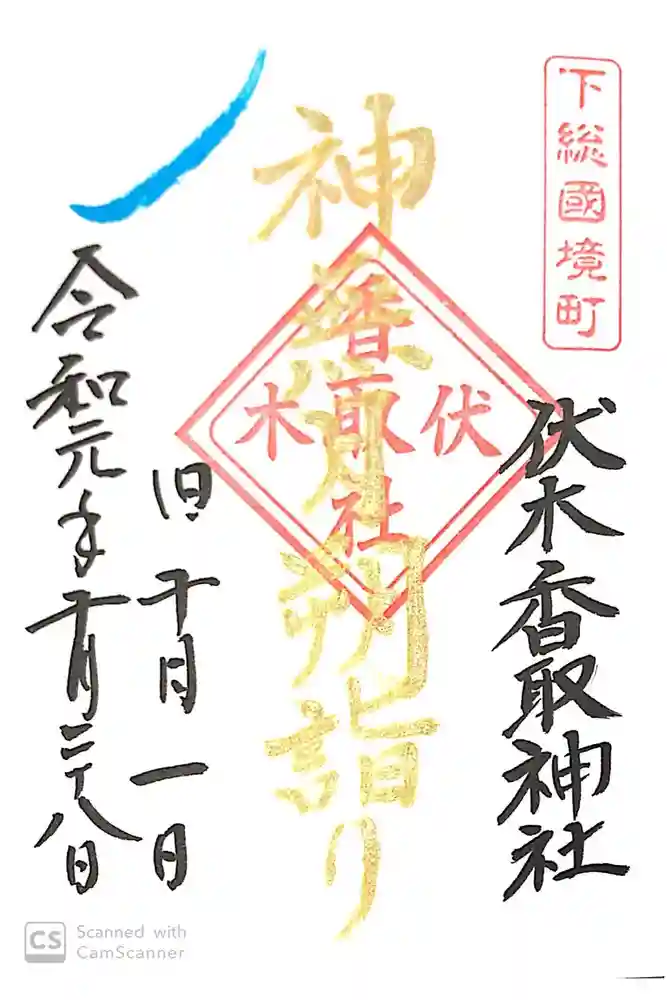 下総國境町
伏木香取神社
神無月朔詣り
伏木
香取社
旧十月一日
令和元年十月二十八日
CS Scanned with
CamScanner